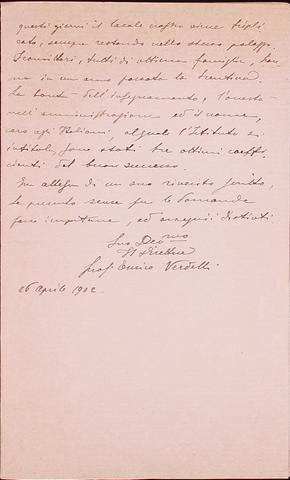 questi giorni il locale nostro viene tripli
cato, sempre restando nello stesso palazzo.
I convittori, tutti di ottima famiglia, han
no in un anno passato la trentina.
La bontà dell'insegnamento, l'onestà
nell'amministrazione ed il nome,
caro agli Italiani, al quale l'Istituto si
intitola, sono stati tre ottimi coeffi
cienti del buon successo.
In attesa di un suo riverito scritto,
la presento scuse per le domande
forse importune, ed ossequi distinti
Suo Dev.mo
Il Direttore
Prof. Enrico Verdelli
26 Aprile 1902.